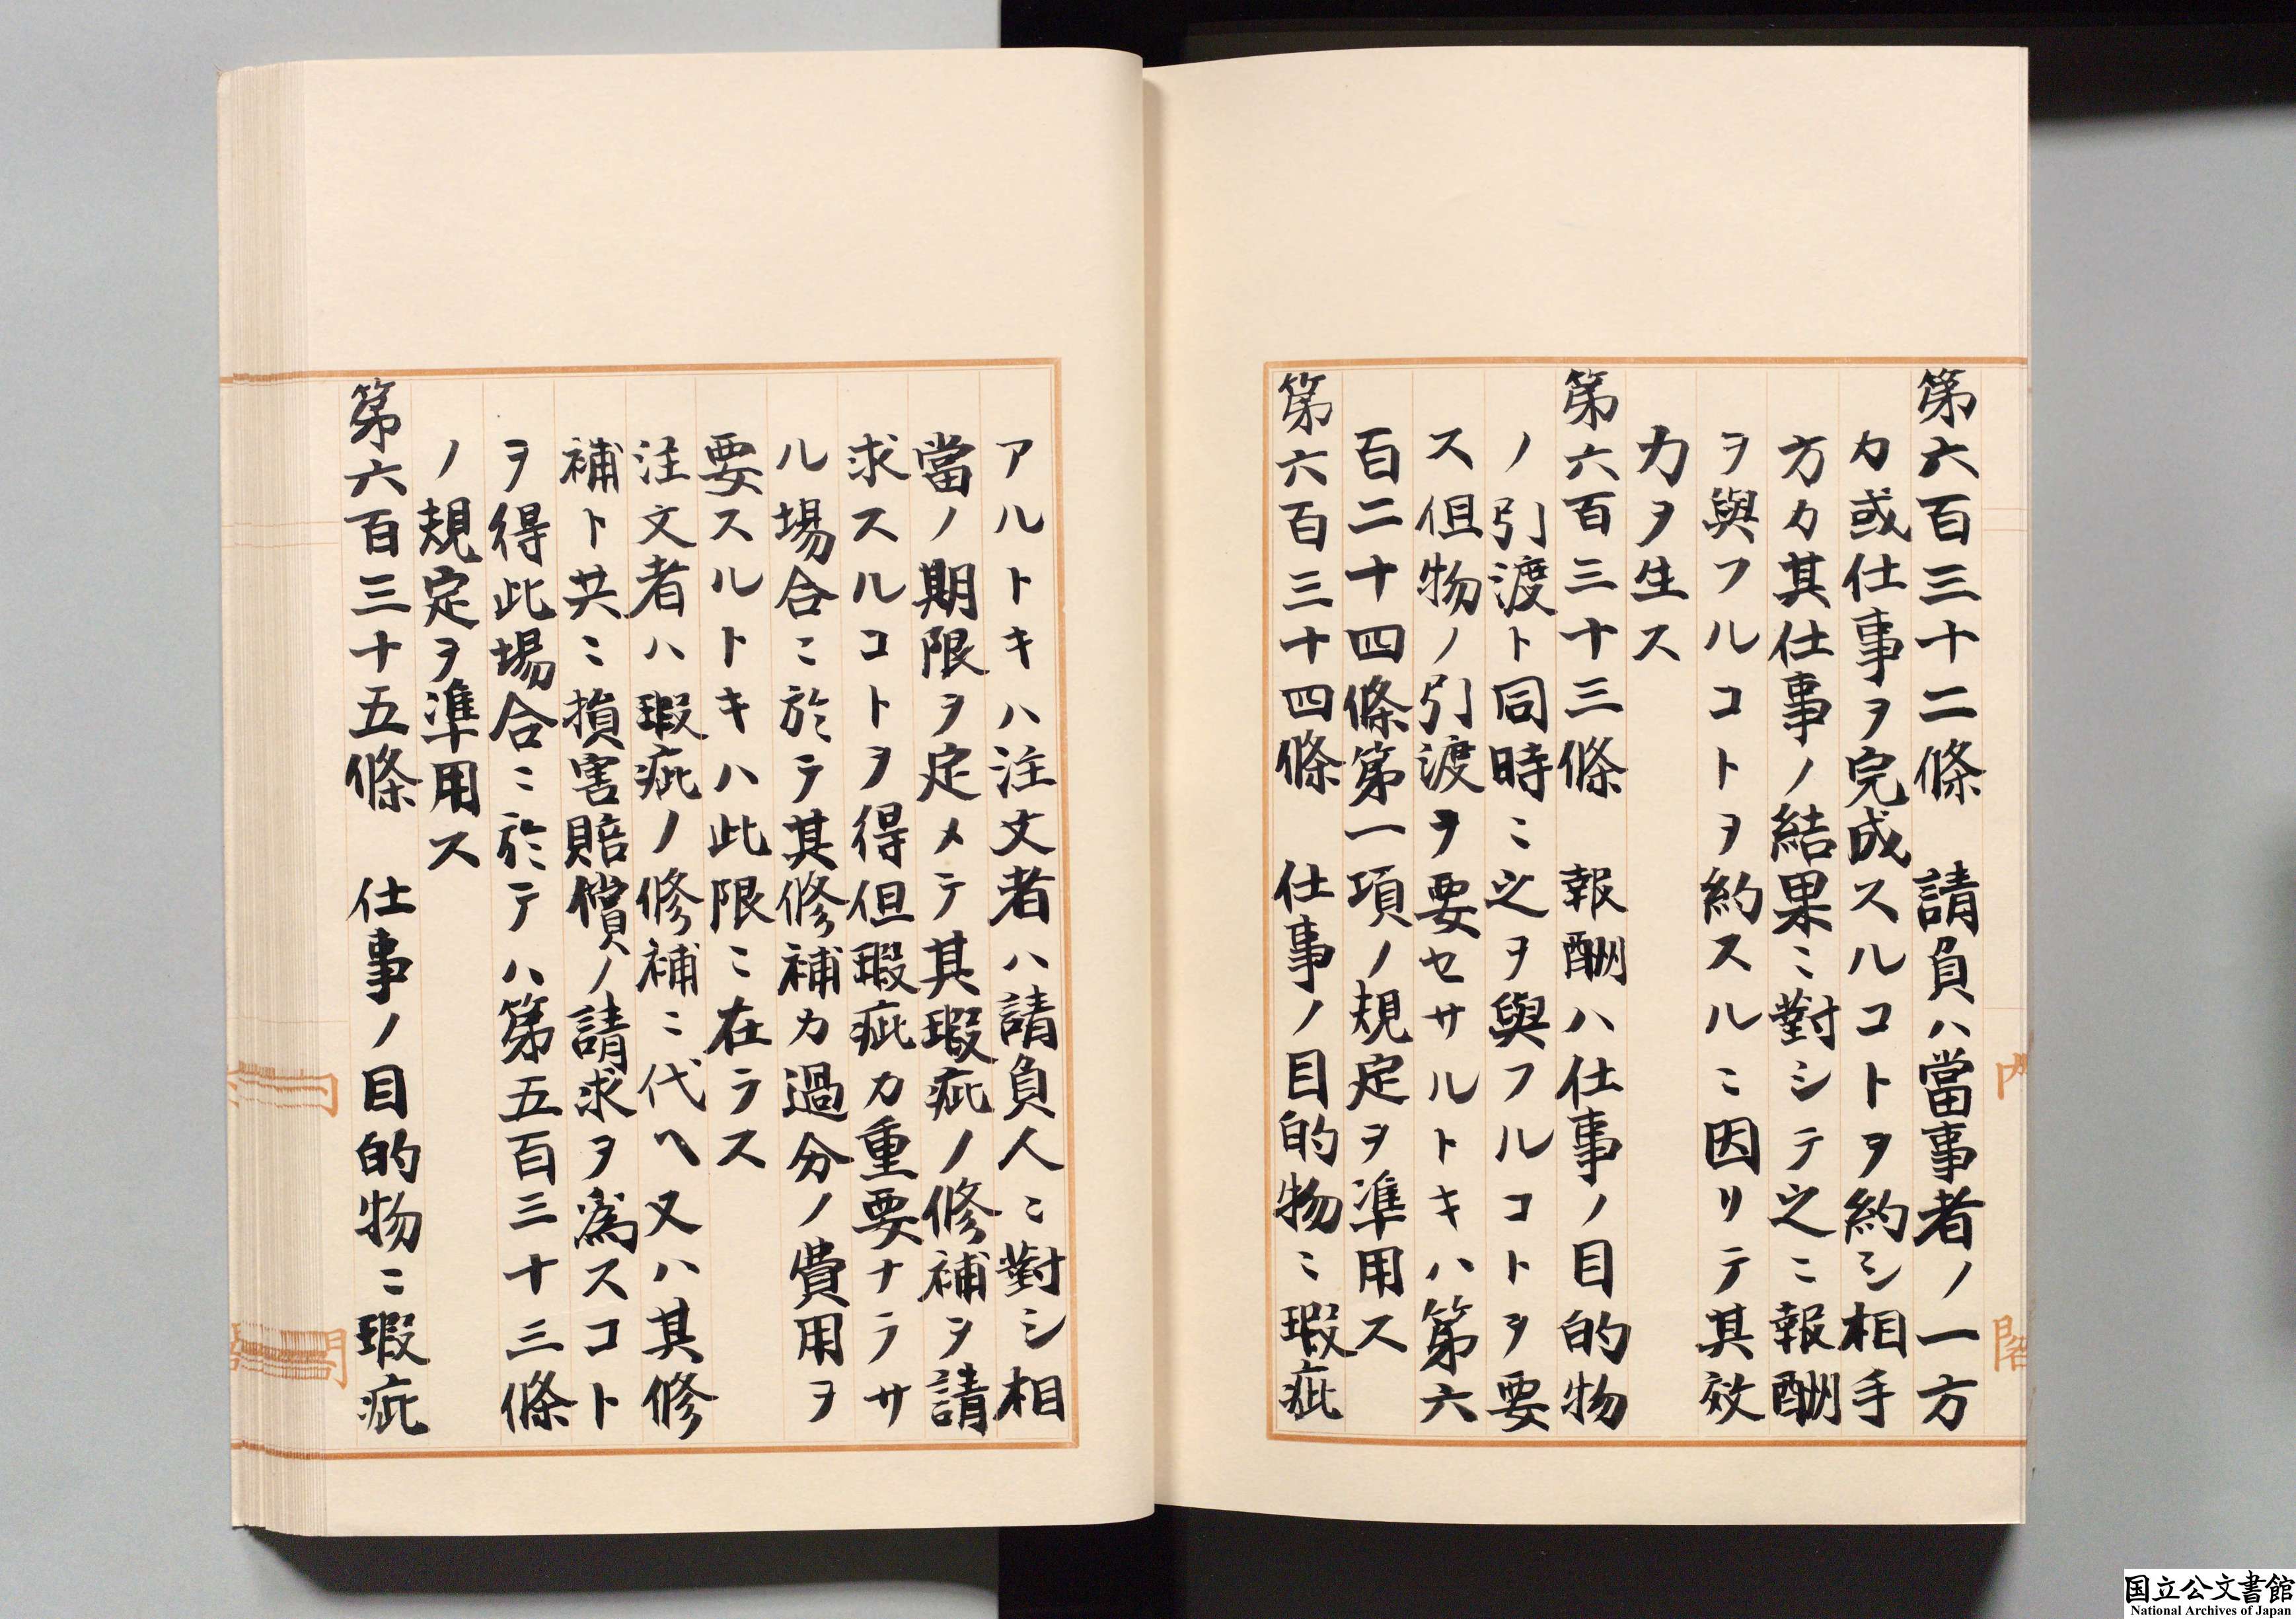 第六百三十二條　請負ハ當事者ノ一方
カ或仕事ヲ完成スルコトヲ約シ相手
方カ其仕事ノ結果ニ對シテ之ニ報酬
ヲ與フルコトヲ約スルニ因リテ其效
力ヲ生ス
第六百三十三條　報酬ハ仕事ノ目的物
ノ引渡ト同時ニ之ヲ與フルコトヲ要
ス但物ノ引渡ヲ要セサルトキハ第六
百二十四條第一項ノ規定ヲ準用ス
第六百三十四條　仕事ノ目的物ニ瑕疵
アルトキハ注文者ハ請負人ニ對シ相
當ノ期限ヲ定メテ其瑕疵ノ修補ヲ請
求スルコトヲ得但瑕疵カ重要ナラサ
ル場合ニ於テ其修補カ過分ノ費用ヲ
要スルトキハ此限ニ在ラス
注文者ハ瑕疵ノ修補ニ代ヘ又ハ其修
補ト共ニ損害賠償ノ請求ヲ爲スコト
ヲ得此場合ニ於テハ第五百三十三條
ノ規定ヲ準用ス
第六百三十五條　仕事ノ目的物ニ瑕疵
内閣
国立公文書館
National Archives of Japan